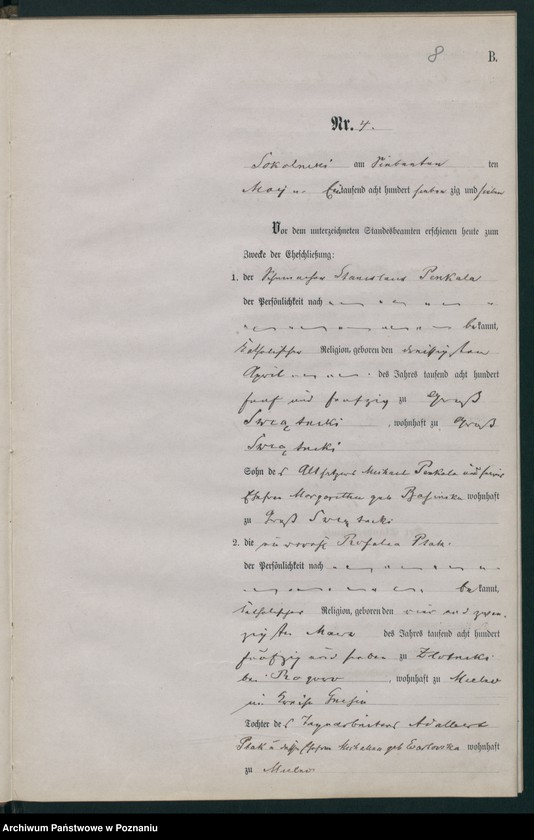 8 B.
Nr. 4.
Sokolniki am Siebenten ten
Mai Eintausend acht hundert sieben zig und sieben
Vor dem unterzeichneten Standesbeamten erschienen heute zum
Zwecke der Eheschließung:
1. der Schumacher Stanislaus Penkala
der Persönlichkeit nach
bekannt,
katholischer Religion, geboren den dreißigsten
April des Jahres tausend acht hundert
fünf und funfzig zu Groß
Swiątniki, wohnhaft zu Groß
Swiątniki
Sohn des Altsitzers Michael Penkala und seiner
Ehefrau Margaretha geb wohnhaft
zu Groß Swiątniki
2. die Rosalia Ptak
der Persönlichkeit nach
bekannt,
katholischer Religion, geboren den vier und zwan
zigsten des Jahres tausend acht hundert
fünfzig und sieben zu
bei Rogowo, wohnhaft zu Mielno
im Kreise Gnesen
Tochter des Tagearbeiters Adalbert
Ptak u dessen Ehefrau geb wohnhaft
zu Mielno
Archiwum Państwowe w Poznaniu